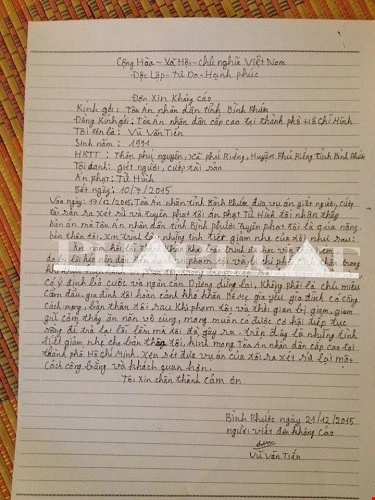 Cộng Hòa - Xã Hội - chủ nghĩa Việt Nam
Độc Lập - Tự Do - Hạnh phúc
Đơn Xin Kháng Cáo
Kính gởi: Tòa Án nhân dân tỉnh Bình Phước
Đồng Kính gởi: Tòa Án nhân dân cấp cao tại thành phố Hồ Chí Minh
Tôi tên là: Vũ Văn Tiến
Sinh năm: 1991
HKTT: Thôn phú nguyên, xã phú Riềng, Huyện Phú Riềng Tỉnh Bình Phước
Tội danh: giết người, cướp tài sản
Án phạt: Tử Hình
Bắt ngày: 10/7/2015
Vào ngày 17/12/2015, Tòa Án nhân dân tỉnh Bình Phước đưa vụ án giết người, cướp
tài sản ra xét xử và tuyên phạt tôi án phạt Tử Hình tôi nhận thấy
bản án mà Tòa Án nhân dân tỉnh Bình Phước tuyên phạt tôi là quá nặng
bản thân tôi. Xin trình bày những tình tiết giảm nhẹ của tôi như sau:
phạm tội và bị chi phối
cố ý định bỏ cuộc và ngăn cản Dương dừng lại, Không phải là chủ mưu
cầm đầu, gia đình tôi hoàn cảnh khó khăn Bố Mẹ già yếu gia đình có công
cách mạng, bản thân tôi sau khi phạm tội và thời gian bị giam, giam
giữ cảm thấy ăn năn vô cùng, mong muốn có được cơ hội tiếp tục
sống để trả lại lỗi lầm mà tôi đã gây ra. trên đây là những tình
tiết giảm nhẹ cho bản thân tôi, kính mong Tòa Án nhân dân cấp cao tại
thành phố Hồ Chí Minh. Xem xét đưa vụ án của tôi ra xét xử lại một
cách công bằng và khách quan hơn.
Tôi Xin chân thành cảm ơn
Bình Phước ngày 21/12/2015
người viết đơn kháng cáo
Vũ Văn Tiến